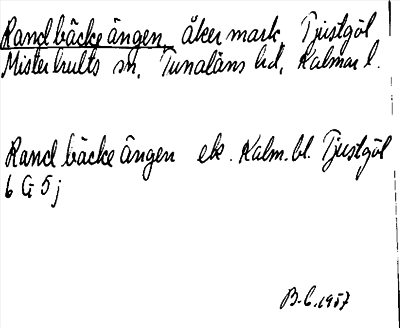 Randbäckeängen, åkermark, Tjustgöl
Misterhults sn, Tunaläns hd, Kalmar l.
Randbäckeängen ek. Kalm. bl. Tjustgöl
6 G 5 j
B.C. 1957